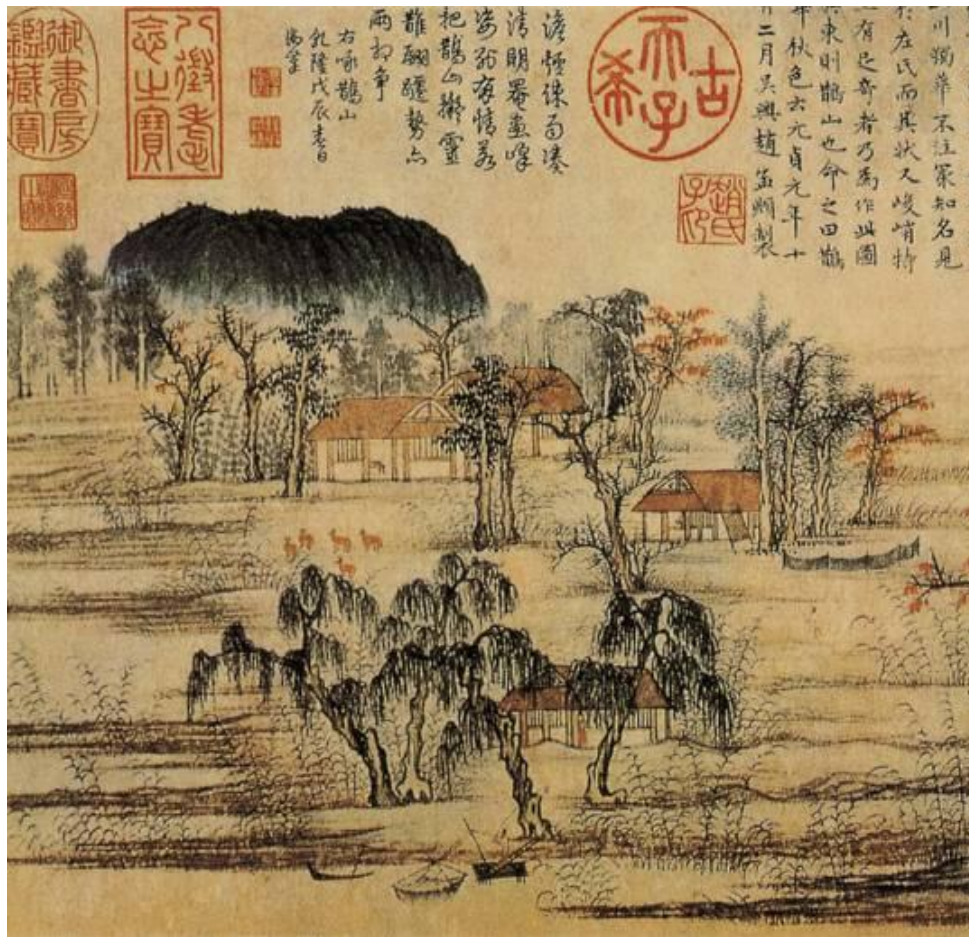 川獨華不注冣知名見
於左氏而其狀又峻峭特
立有足奇者乃為作此圖
其東則鵲山也命之曰鵲
華秋色云元貞元年十
二月吳興趙孟頫製
趙氏子昂
古希天子
澹煙疎雨湊
清明罨畫峰
姿別有情若
把鵲山擬靈
鵲翩躚勢亦
兩相爭
右咏鵲山
乾隆戊辰春日
御筆
八徵耄念之寶
御書房鑑藏寶